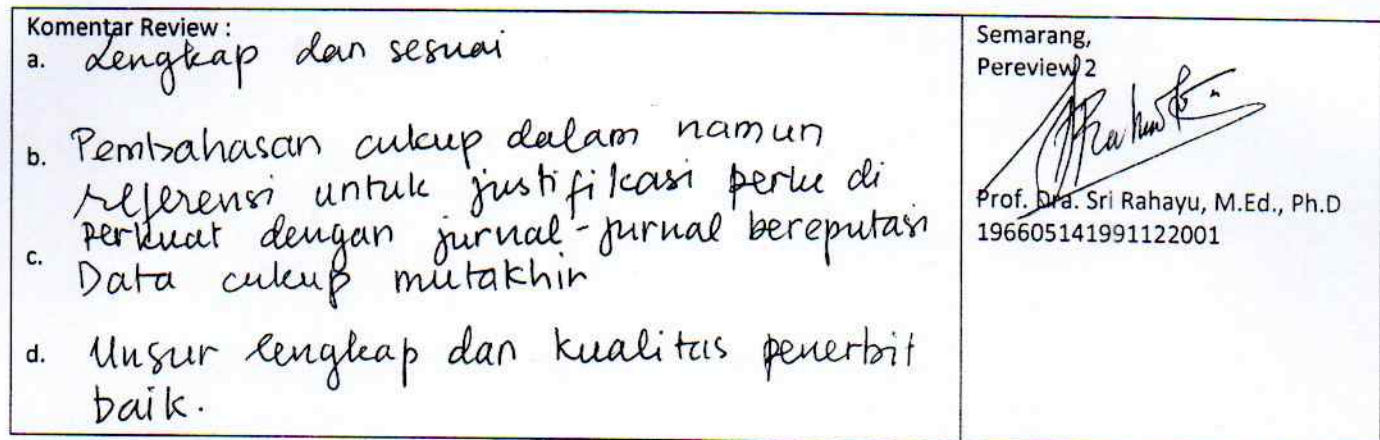 Komentar Review :
a. Lengkap dan sesuai
b. Pembahasan cukup dalam namun
referensi untuk justifikasi perlu di
perkuat dengan jurnal-jurnal bereputasi
c. Data cukup mutakhir
d. Unsur lengkap dan kualitas penerbit
baik.
Semarang,
Pereview 2
Prof. Dra. Sri Rahayu, M.Ed., Ph.D
196605141991122001